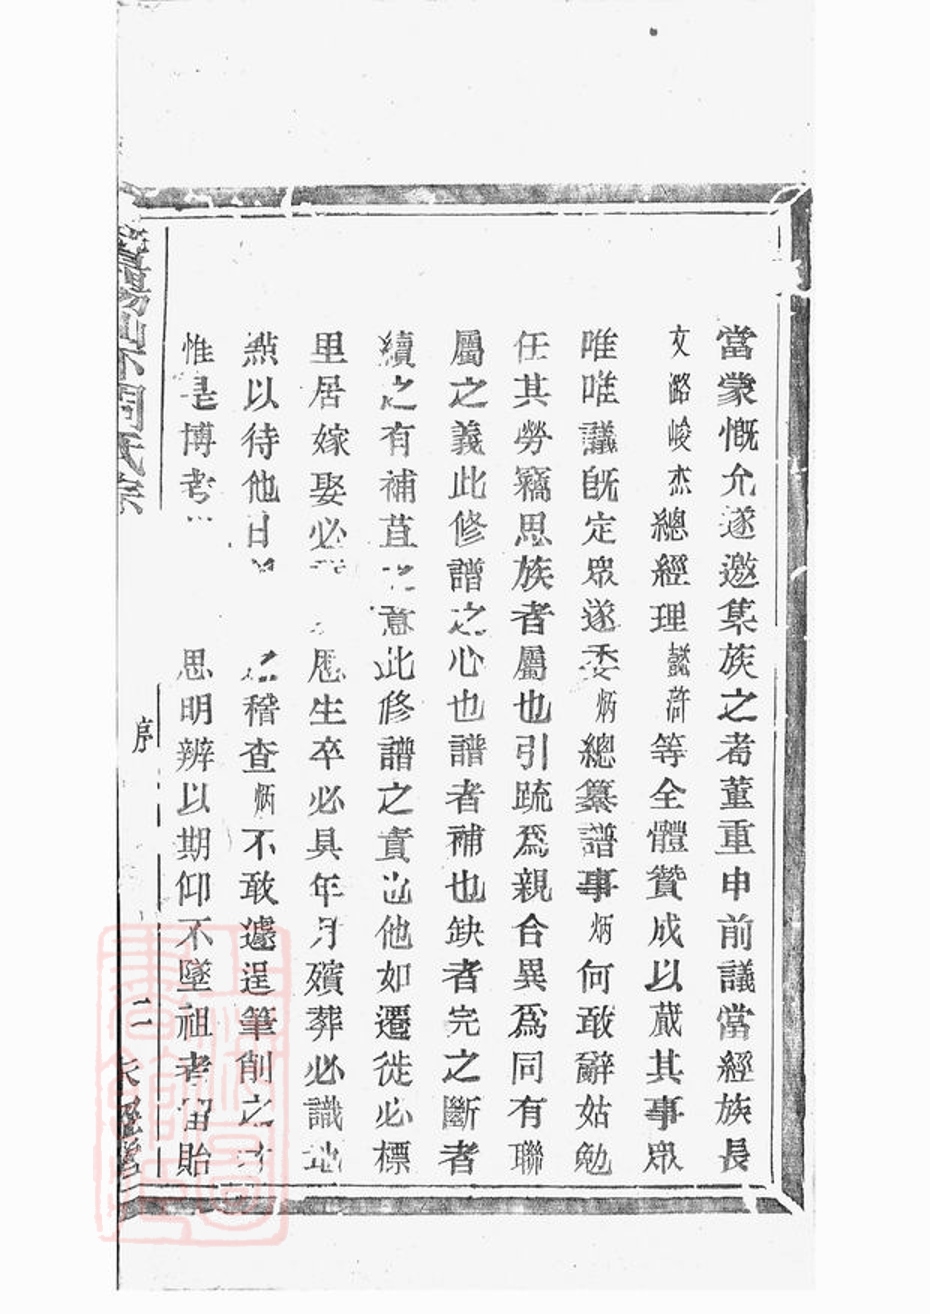 當蒙慨允遂邀集族之耆董重申前議當經族長
文潞峻杰總經理懿滸等全體贊成以蕆其事眾
唯唯議既定眾遂委炳總纂譜事炳何敢辭姑勉
任其勞竊思族者屬也引疏爲親合異爲同有聯
屬之義此修譜之心也譜者補也缺者完之斷者
續之有補苴之意此修譜之責也他如遷徙必標
里居嫁娶必生卒必具年月殯葬必識地
點以待他日稽查炳不敢遽逞筆削之才
惟是博考思明辨以期仰不墜祖考留貽
山下周氏宗
序
二